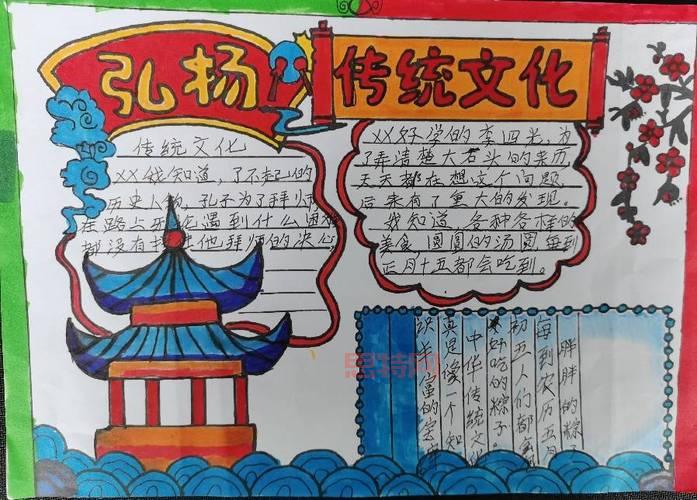 弘扬
传统文化
传统文化
XX我知道，了不起的
历史人物，孔子为了拜师
在路上无论遇到什么困难
都没有他拜师的决心
XX好学的李四光，为
了弄清楚大石头的来历，
天天都在想这个问题，
后来有了重大的发现。
我知道，各种各样的
美食圆圆的汤圆每到
正月十五都会吃到。
胖胖的粽
每到农历五月
初五人们都
好吃的粽子。
中华传统文化
真是像一个知
识丰富的宝库
思特网